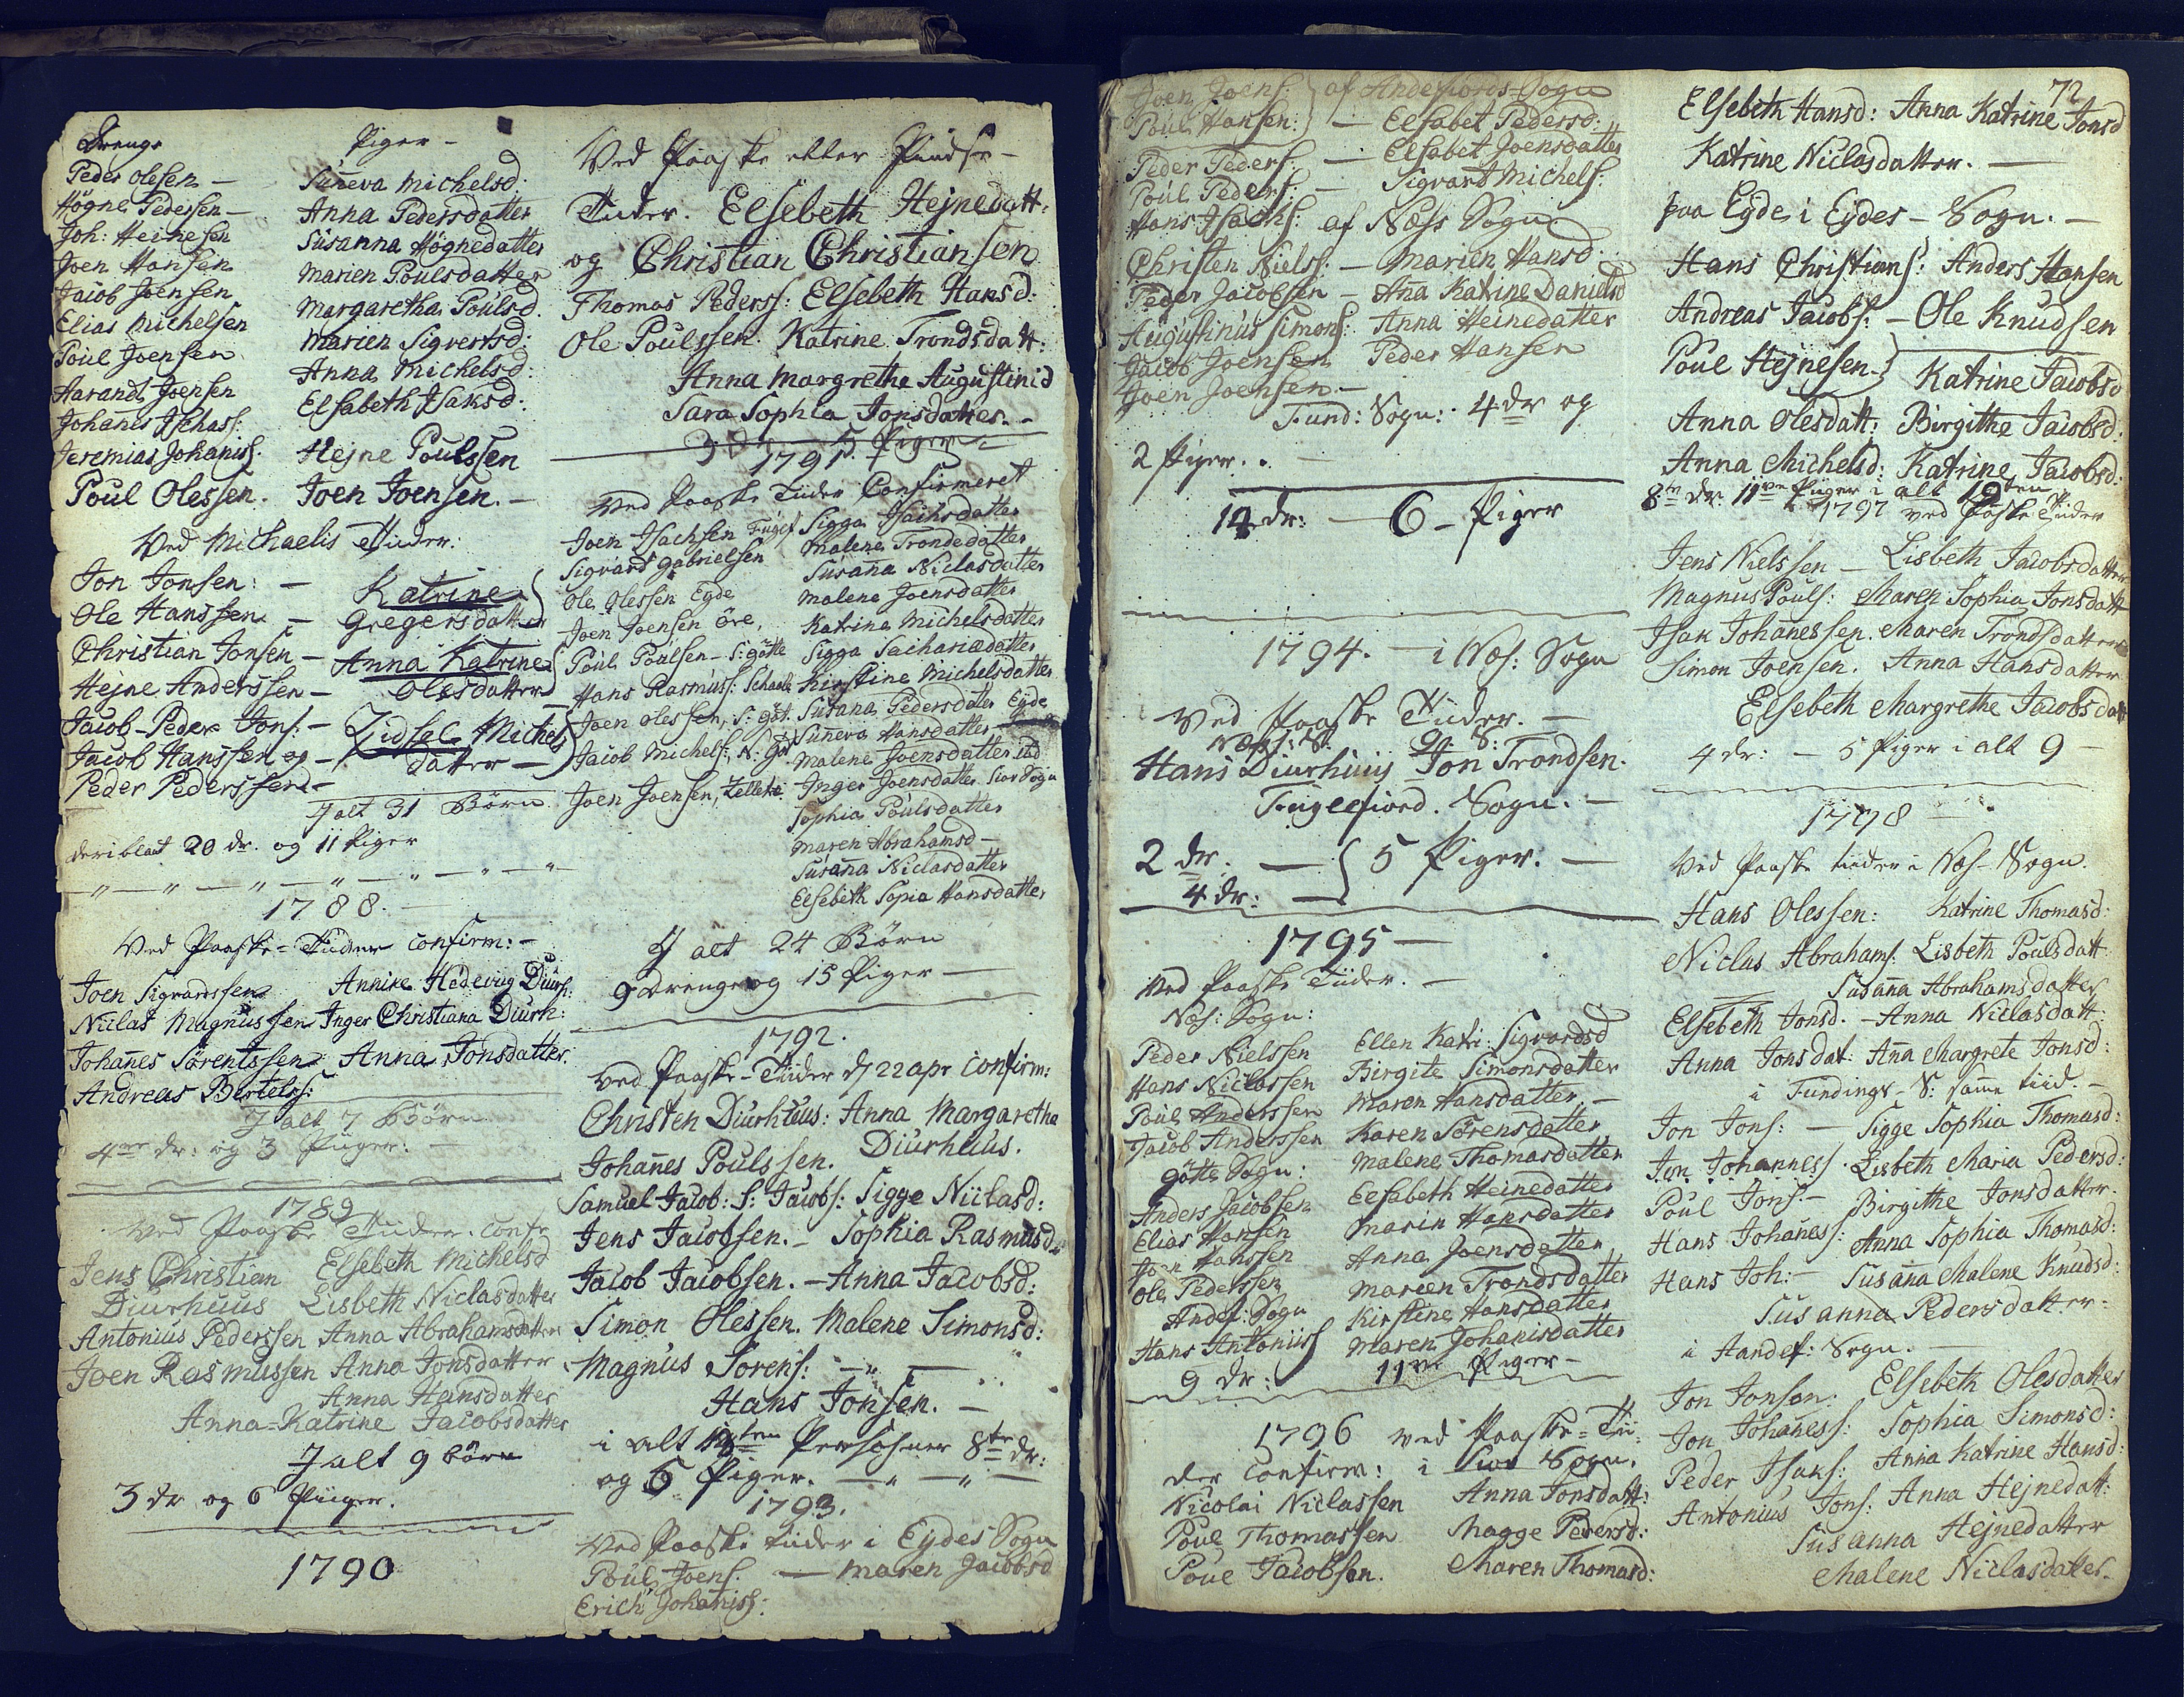 Drenge
Peder Olesen —
Högne Pedersen —
Joh: Heinesen
Joen Hansen
Jacob Joensen
Elias Michelsen
Poul Joensen
Harandt Joensen
Johañes Jschass:
Jeremias Johanis:
Poul Olessen.
Piger —
Suneva Michelsd.
Anna Pedersdatter
Susanna Högnedatter
Marien Poulsdatter
Margaretha Poulsd.
Marien Sigvertsd:
Anna Michelsd:
Elsabeth Jsaksd:
Hejne Poulssen
Joen Joensen. —
Ved Michaelis Tider:
Jon Jonsen: —
Ole Hanssen. —
Christian Jonsen —
Hejne Anderssen —
Jacob-Peder Jons: —
Jacob Hanssen og —
Peder Pederssen —
Katrine
Gregersdatter
Anna Katrine
Olesdatter
Zidsel Michels
datter —
J alt 31 Börn
deriblat 20 dr. og 11 Piger
1788. —
Ved Paaske-Tider confirm: —
Joen Sigvardssen
Niclas Magnussen
Johañes Sörentssen
Andreas Bertels:
Annike Hedevig Diurh:
Inger Christiana Diurh:
Anna Jonsdatter.
J alt 7 Börn
4re dr: og 3 Piiger: —
1789
Ved Paaske Tider. conf
Jens Christian
Diurhuus
Antonius Pederssen
Joen Rasmussen
Elsebeth Michelsd
Lisbeth Niclasdatter
Anna Abrahamsdatter
Anna Jonsdatter
Anna Hansdatter
Anna-Katrine Jacobsdatter
J alt 9 börn
3 dr og 6 Piiger.
1790
Ved Paaske eller Pindse —
Tider. Elsebeth Hejnedatt:
og Christian Christiansen
Thomas Pederss: Elsebeth Hansd:
Ole Poulssen. Katrine Trondsdatt:
Anna Margrethe Augustinid
Sara Sophia Jonsdatter. —
3 Dr. 5 Piger
1791.
Ved Paaske Tider Confirmeret
Joen Jsachsen Fuglef
Sigvard Gabrielsen
Ole Olessen Eyde
Joen Joensen öre,
Poul Poulsen — S: götte
Hans Rasmuss:
Joen Olessen, S: göt.
Jacob Michels:, N: Gö
Joen Joensen,
Sigga Jsachsdatter
Malene Trondedatter
Susaña Niclasdatter
Malene Joensdatter
Katrina Michelsdatter
Sigga Sachariadatter
Kirstine Michelsdatter
Susaña Pedersdatter Eyde
Suneva Hansdatter
Malene Joensdatter
Inger Joensdatter Siov Sogn
Sophia Poulsdatter
Maren Abrahamsd —
Susaña Niclasdatter
Elsebeth Sopia Hansdatter
J alt 24 Börn
9 drenge og 15 Piger —
1792.
Ved Paaske-Tider d 22 apr confirm:
Christen Diurhuus: Anna Margaretha
Johañes Poulssen. Diurhuus.
Samuel Jacob: S: Jacobs: Sigge Niclasd:
Jens Jacobsen. — Sophia Rasmusd
Jacob Jacobsen. — Anna Jacobsd:
Simon Olessen. Malene Simonsd:
Magnus Sörens: — " —
Hans Jonsen. —
i alt Persohner 8te dr:
og 6 Piger. — " — " —
1793.
Ved Paaske Tider i Eydes Sogn
Poul Joens: — Maren Jacobsd
Erich Johaniss:
Joen Joens: } af Andefiords-Sogn
Poul Hansen: } — Elsabet Pedersd:
Peder Peders: — Elsabet Joensdatter
Poul Peders: — Sigvard Michels:
Hans Jsachs: af Næss Sogn
Christen Niels: — Marien Hansd:
Peder Jacobsen — Aña Katrine Danielsd
Augustinus Simons: Anna Heinedatter
Jacob Joensen Peder Hansen
Joen Joensen —
Fund: Sogn: 4 dr og
2 Piger. . —
14 dr: — 6 — Piger
1794. — i Nes: Sogn
Ved Paaske Tider. —
Nesi: S: G: S:
Hans Diurhuus Jon Trondsen.
Fuglefiord. Sogn. —
2 dr. — { 5 Piger. —
4 dr: —
1795 —
Ved Paaske Tiider. —
Nes: Sogn:
Peder Nielssen
Hans Niclassen
Poul Anderssen
Jacob Anderssen
Götte Sogn:
Anders Jacobsen
Elias Hansen
Joen Hanssen
Ole Pederssen
Andef: Sogn
Hans Antoniis
9 dr:
Ellen Katri: Sigvardsd
Birgite Simonsdatter
Maren Hansdatter. —
Karen Sörensdatter
Malene Thomasdatter
Elsabeth Heinedatter
Marin Hansdatter
Anna Joensdatter
Marien Trondsdatter
Kirstine Hansdatter
Maren Johanisdatter
11ve Piger —
1796 ved Paaske-Tii-
der confirm: i Siov Sogn.
Nicolai Niclassen Anna Jonsdatt:
Poul Thomassen Magge Pedersd:
Poul Jacobsen. Maren Thomasd:
72
Elsebeth Hansd: Anna Katrine Jonsd
Katrine Niclasdatter. —
paa Eyde i Eydes — Sogn. —
Hans Christians: Anders Hansen
Andreas Jacobs: — Ole Knudsen
Poul Hejnesen — } Katrine Jacobsd
Anna Olesdatt: Birgithe Jacobsd:
Anna Michelsd: Katrine Jacobsd:
8te dr. 11ve Piiger i alt 19ten
1797 ved Paaske Tider
Jens Nielssen — Lisbeth Jacobsdatter
Magnus Pouls: Maren Sophia Jonsdatt
Jsak Johañessen. Maren Trondsdatter
Simon Joensen. Anna Hansdatter
Elsebeth Margrethe Jacobsdatt
4 dr: — 5 Piger i alt 9 —
1798 —
Ved Paaske tider i Nes-Sogn.
Hans Olessen: Katrine Thomasd:
Niclas Abrahams: Lisbeth Poulsdatt
Susaña Abrahamsdatter
Elsebeth Jonsd. — Anna Niclasdatt:
Anna Jonsdat: Aña Margrete Jonsd:
i Fundings — S: same tiid. —
Jon Jons: — Sigge Sophia Thomasd:
Jon Johanness: Lisbeth Maria Pedersd:
Poul Jons: — Birgithe Jonsdatter.
Hans Johañess: Anna Sophia Thomasd:
Hans Joh: — Susaña Malene Knudsd:
Susanna Pedersdatter —
i Handef: Sogn. —
Jon Jonson: Elsebeth Olesdatter
Jon Johañess: Sophia Simonsd:
Peder Jsaks: Aña Katrine Hansd:
Antonius Jons: Anna Hejnedatt:
Susanna Hejnedatter
Malene Niclasdatter.